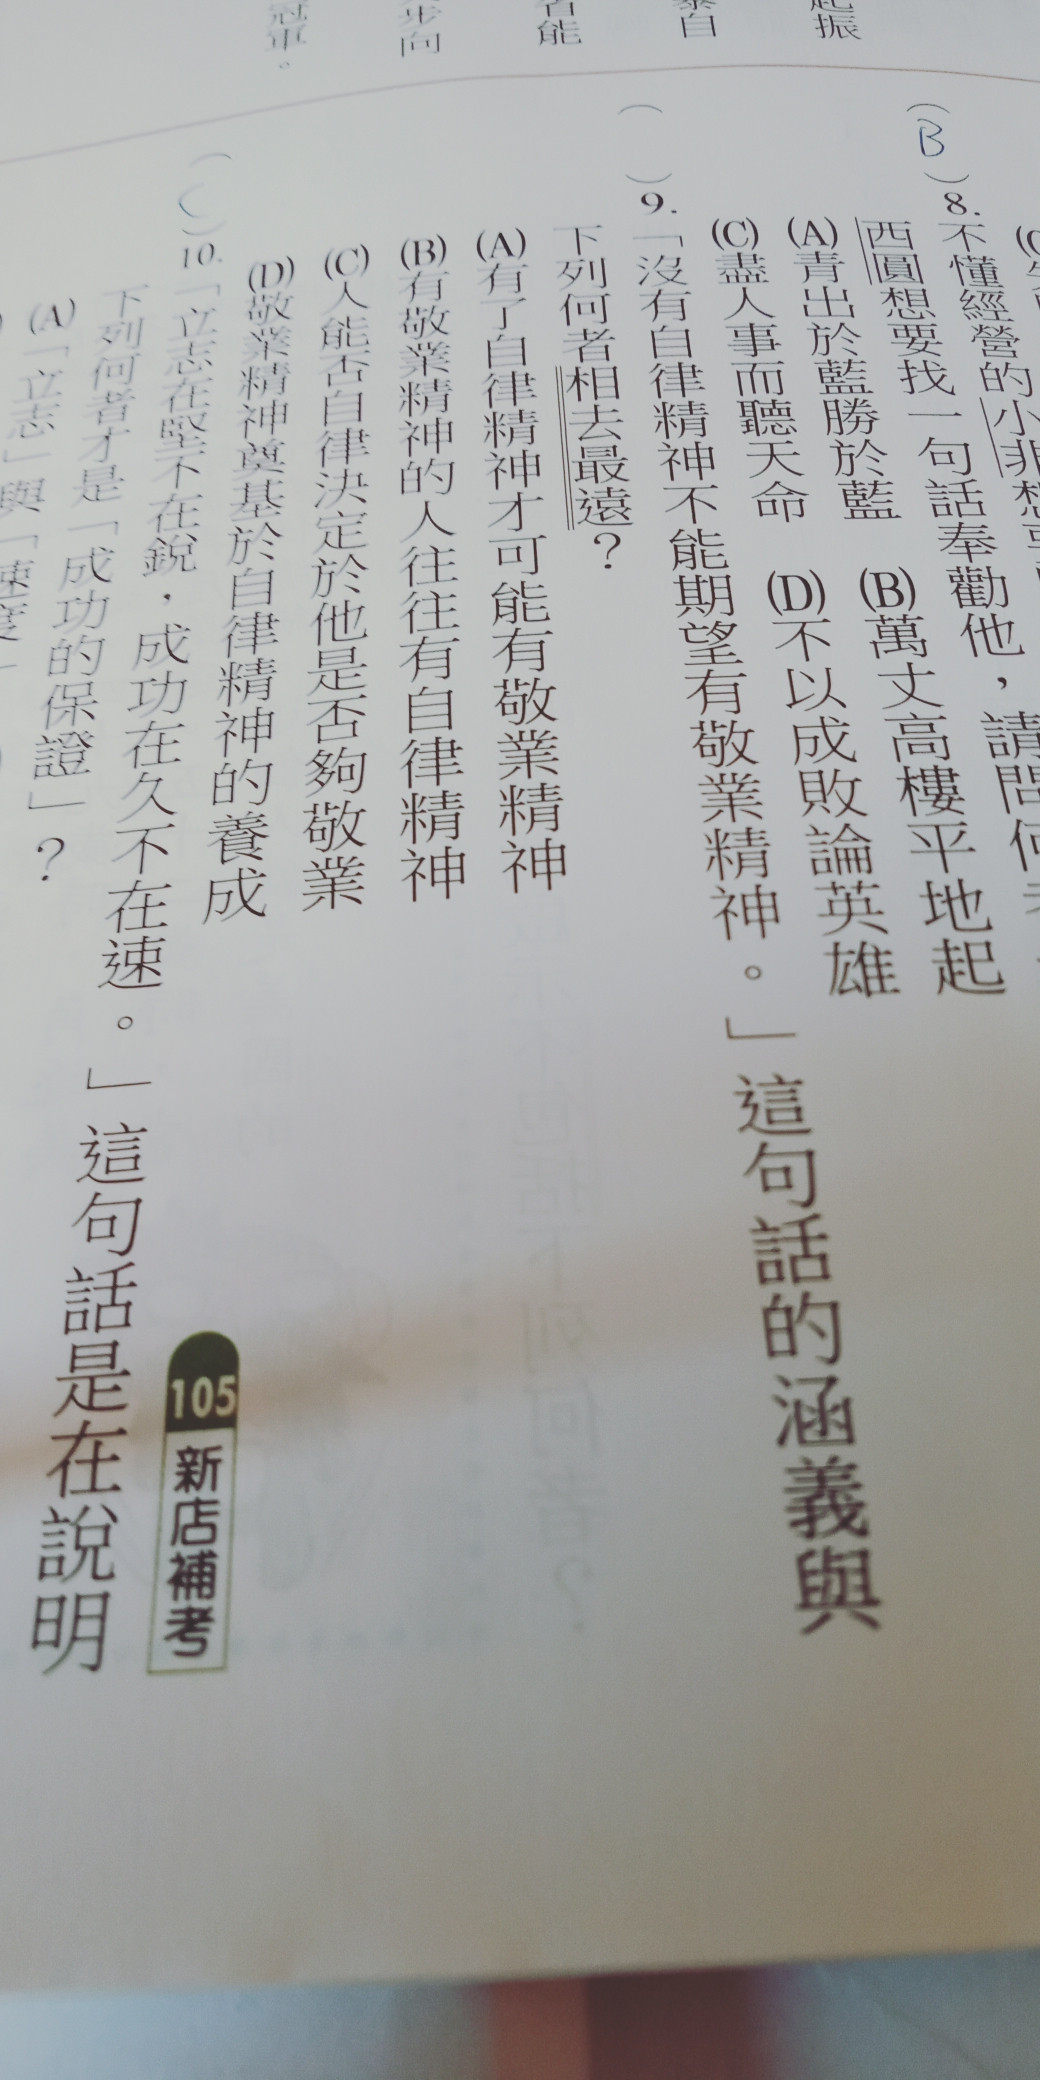 起振
自
能
步向
冠軍。
(B)8.不懂經營的小非想
西圓想要找一句話奉勸他，請問何
(A)青出於藍勝於藍　(B)萬丈高樓平地起
(C)盡人事而聽天命　(D)不以成敗論英雄
(　)9.「沒有自律精神不能期望有敬業精神。」這句話的涵義與
下列何者相去最遠？
(A)有了自律精神才可能有敬業精神
(B)有敬業精神的人往往有自律精神
(C)人能否自律決定於他是否夠敬業
(D)敬業精神奠基於自律精神的養成
105新店補考
(C)10.「立志在堅不在銳，成功在久不在速。」這句話是在說明
下列何者才是「成功的保證」？
(A)「立志」與「速度」